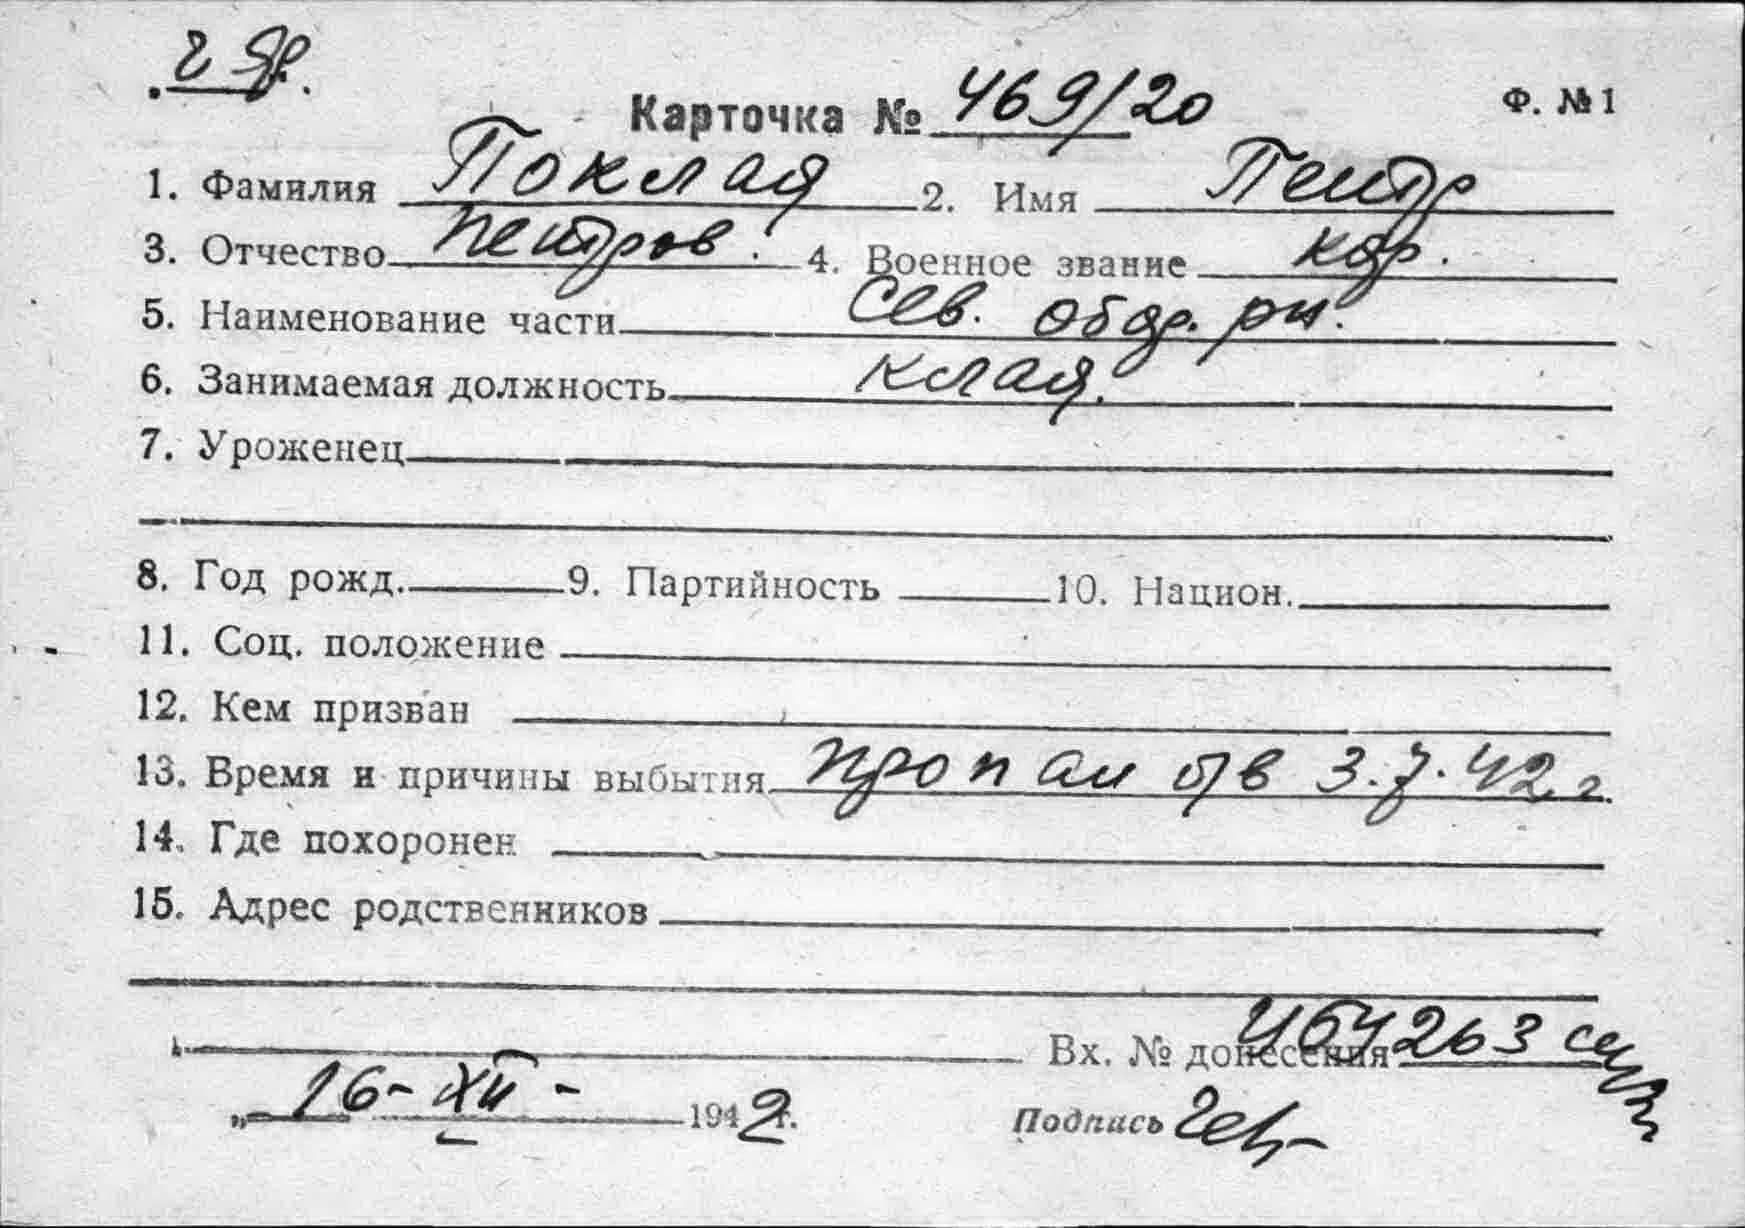 Карточка № 469/20 Ф. № 1
1. Фамилия Поклад 2. Имя Петр
3. Отчество Петров. 4. Военное звание кдр.
5. Наименование части Сев. обор. рн.
6. Занимаемая должность
7. Уроженец
8. Год рожд. 9. Партийность 10. Национ.
11. Соц. положение
12. Кем призван
13. Время и причины выбытия пропал б/в 3.7.42 г.
14. Где похоронен
15. Адрес родственников
Вх. № донесения
„16-XII- 1942г.
Подпись